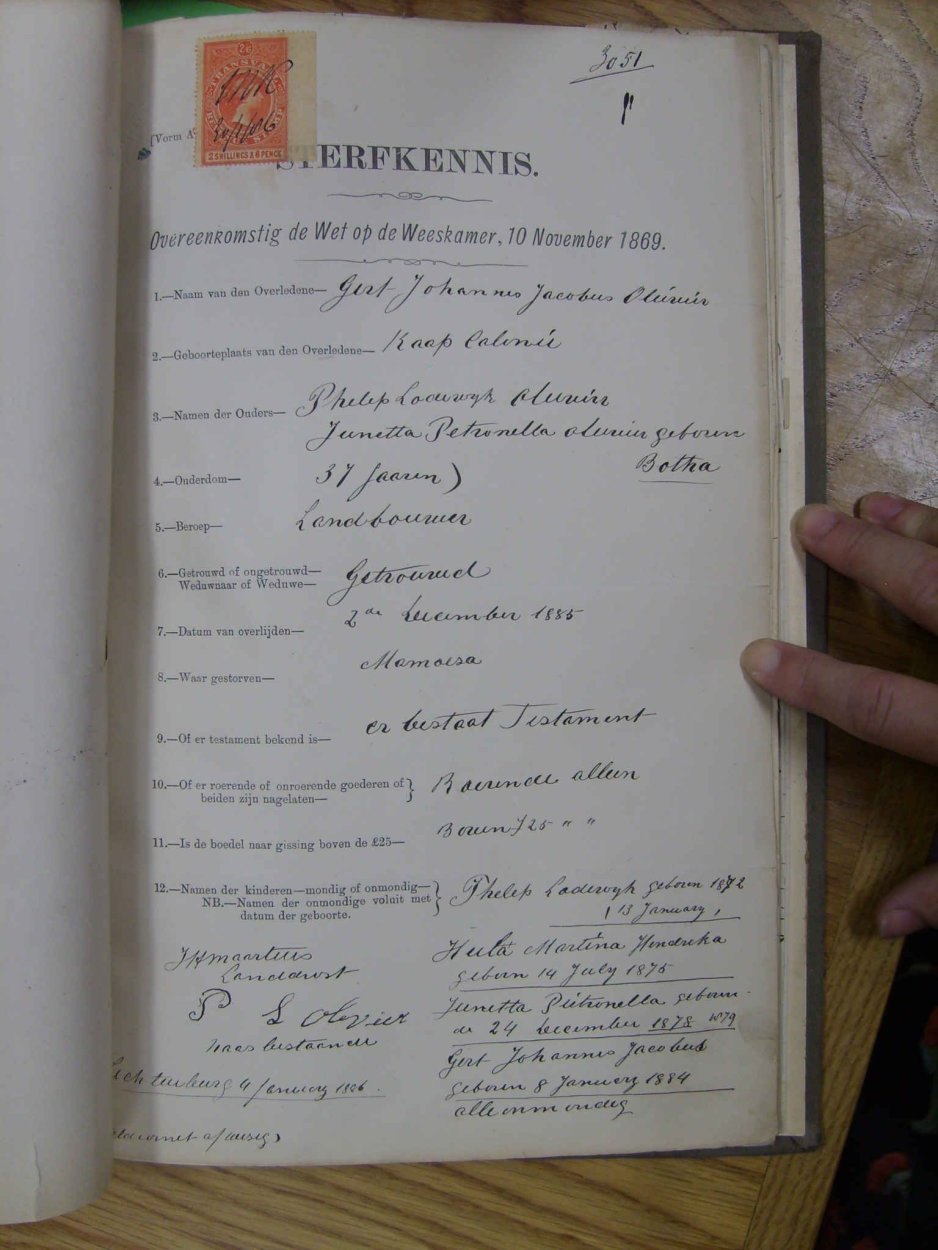 3051
TRANSVAAL
2 SHILLINGS & 6 PENCE
[Vorm A
STERFKENNIS.
Overeenkomstig de Wet op de Weeskamer, 10 November 1869.
1.—Naam van den Overledene— Gert Johannes Jacobus Olivier
2.—Geboorteplaats van den Overledene— Kaap Colonie
3.—Namen der Ouders— Philip Lodewyk Olivier
Junetta Petronella Olivier geboren
Botha
4.—Ouderdom— 37 Jaaren)
5.—Beroep— Landbouwer
6.—Getrouwd of ongetrouwd—
Weduwnaar of Weduwe— Getrouwd
7.—Datum van overlijden— 2de December 1885
8.—Waar gestorven— Mamoesa
9.—Of er testament bekend is— er bestaat Testament
10.—Of er roerende of onroerende goederen of
beiden zijn nagelaten— Roerende alleen
11.—Is de boedel naar gissing boven de £25— Boven £25 " "
12.—Namen der kinderen—mondig of onmondig—
NB.—Namen der onmondige voluit met
datum der geboorte.
Philip Lodewyk geboren 1872
13 January
Martina Hendrika
geboren 14 July 1875
Junetta Pietronella geboren
de 24 December 1878 1879
Gert Johannes Jacobus
geboren 8 January 1884
alle onmondig
Landdrost
P L Olivier
naasbestaande
Lichtenburg 4 January 1886